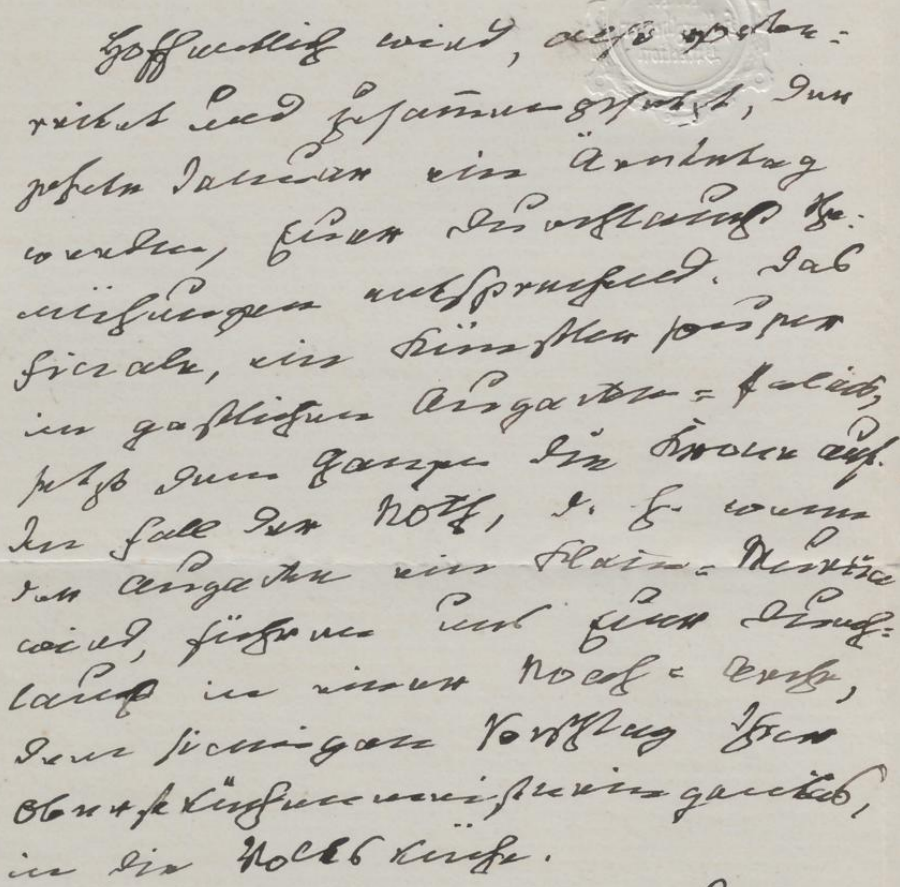 Hoffentlich wird, also
und zusammengesetzt, der
zehnte Januar ein Ärntetag
werden, Eurer Durchlaucht Be-
mühungen entsprechend. Das
Finale, ein Künstler souper
im gastlichen Augarten-Palais,
setzt dem Ganzen die Krone auf.
Im Fall der Noth, d. h. wenn
der Augarten ein Klein-Venedig
wird, führen uns Eure Durch-
laucht in einer Noah-Arche,
dem sinnigen Vorschlag Ihrer
Oberstküchenmeisterin gemäß,
in die Volksküche.